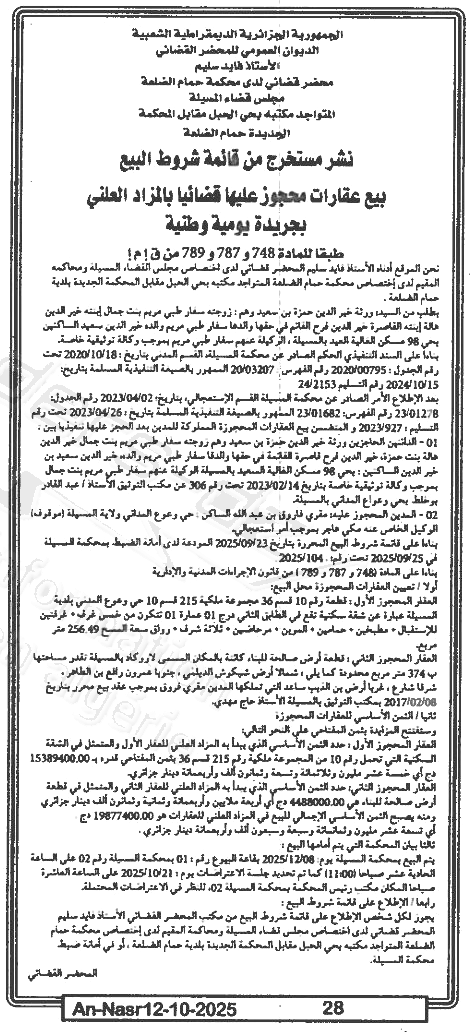 الجمهورية الجزائرية الديمقراطية الشعبية
الديوان العمومي للمحضر القضائي
الأستاذ فايد سليم
محضر قضائي لدى محكمة حمام الضلعة
مجلس قضاء المسيلة
المتواجد مكتبه بحي الحبل مقابل المحكمة
الجديدة حمام الضلعة
نشر مستخرج من قائمة شروط البيع
بيع عقارات محجوز عليها قضائيا بالمزاد العلني
بجريدة يومية وطنية
طبقا للمادة 748 و 787 و 789 من ق إ م إ
نحن الموقع أدناه الأستاذ فايد سليم المحضر قضائي لدى اختصاص مجلس القضاء المسيلة ومحاكمه
المقيم لدى إختصاص محكمة حمام الضلعة المتواجد مكتبه بحي الحبل مقابل المحكمة الجديدة بلدية
حمام الضلعة .
بطلب من السيد: ورثة خير الدين حمزة بن سعيد وهم : زوجته سفار طبي مريم بنت جمال إبنته خير الدين
هالة إبنته القاصرة خير الدين فرح القائم في حقها والدها سفار طبي مريم والده خير الدين سعيد الساكنين
بحي 98 مسكن العالية العيد بالمسيلة ، الوكيلة عنهم سفار طبي مريم بموجب وكالة توثيقية خاصة.
بناءا على السند التنفيذي الحكم الصادر عن محكمة المسيلة، القسم المدني بتاريخ : 2020/10/18 تحت
رقم الجدول: 2020/00795 رقم الفهرس: 20/03207 الممهور بالصيغة التنفيذية المسلمة بتاريخ:
2024/10/15 رقم التسليم 24/2153
بعد الإطلاع الأمر الصادر عن محكمة المسيلة القسم الإستعجالي، بتاريخ: 2023/04/02 رقم الجدول:
23/01278 رقم الفهرس: 23/01682 الممهور بالصيغة التنفيذية المسلمة بتاريخ : 2023/04/26 تحت رقم
التسليم : 2023/927 و المتضمن بيع العقارات المحجوزة المملوكة للمدين بعد الحجز عليها تنفيذيا بين :
01 - الدائنين الحاجزين ورثة خير الدين حمزة بن سعيد وهم زوجته سفار طبي مريم بنت جمال خير الدين
هالة بنت حمزة، خير الدين فرح قاصرة القائمة في حقها والدتها سفار طبي مريم والده، خير الدين سعيد بن
خير الدين الساكنين : بحي 98 مسكن العالية السعيد بالمسيلة الوكيلة عنهم سفار طبي مريم بنت جمال
بموجب وكالة توثيقية خاصة بتاريخ 2023/02/14 تحت رقم 306 عن مكتب التوثيق الأستاذ / عبد القادر
بوخلط بحي وعواع المدني بالمسيلة.
02 - المدين المحجوز عليه: مقري فاروق بن عبد الله الساكن : حي وعوع المدني ولاية المسيلة (موقوف)
الوكيل الخاص عنه مكي هاجر بموجب أمر استعجالي.
بناءا على قائمة شروط البيع المحررة بتاريخ 2025/09/23 المودعة لدى أمانة الضبط بمحكمة المسيلة
في 2025/09/25 تحت رقم: 2025/104 .
بناءا على المادة (748 و 787 و 789) من قانون الإجراءات المدنية والإدارية
أولا / تعيين العقارات المحجوزة محل البيع:
العقار المحجوز الأول : قطعة رقم 10 قسم 36 مجموعة ملكية 215 قسم 10 حي وعوع المدني بلدية
المسيلة عبارة عن شقة سكنية تقع في الطابق الثاني درج 01 عمارة 01 تتكون من خمس غرف - غرفتين
للإستقبال - مطبخين - حمامين - الممرين - مرحاضين - ثلاثة شرف - رواق سعة المسح 256.49 متر
مربع.
العقار المحجوز الثاني : قطعة أرض صالحة للبناء كائنة بالمكان المسمى لاروكاد بالمسيلة تقدر مساحتها
ب 374 متر مربع محدودة كما يلي ، شمالا أرض شيكوش الديلمي ، جنوبا عمرون رافع بن الطاهر ،
شرقا شارع ، غربا أرض بن الذيب ساعد التي تملكها المدين مقري فروق بموجب عقد بيع محرر بتاريخ
2017/02/08 بمكتب التوثيق بالمسيلة الأستاذ حاج مهدي.
ثانيا / الثمن الأساسي للعقارات المحجوزة
وستفتتح المزايدة بثمن المفتاحي على النحو التالي:
العقار المحجوز الأول : حدد الثمن الأساسي الذي يبدأ به المزاد العلني للعقار الأول والمتمثل في الشقة
السكنية التي تحمل رقم 10 من المجموعة ملكية رقم 215 قسم 36 بثمن المفتاحي قدره ب 15389400.00
دج أي خمسة عشر مليون وثلاثمائة وتسعة وثمانون ألف وأربعمائة دينار جزائري.
العقار المحجوز الثاني: حدد الثمن الأساسي الذي يبدأ به المزاد العلني للعقار الثاني والمتمثل في قطعة
أرض صالحة للبناء هي 4488000.00 دج أي أربعة ملايين وأربعمائة وثمانية وثمانون ألف دينار جزائري
ومنه يصبح الثمن الأساسي الإجمالي للبيع في المزاد العلني للعقارات هو 19877400.00 دج
أي تسعة عشر مليون وثمانمائة وسبعة وسبعون ألف وأربعمائة دينار جزائري .
ثالثا بيان المحكمة التي يتم أمامها البيع :
يتم البيع بمحكمة المسيلة يوم: 2025/12/08 بقاعة البيوع رقم : 01 بمحكمة المسيلة رقم 02 على الساعة
الحادية عشر صباحا (11:00) كما تم تحديد جلسة الاعتراضات يوم : 2025/10/21 على الساعة العاشرة
صباحا المكان مكتب رئيس المحكمة بمحكمة المسيلة 02، للنظر في الاعتراضات المحتملة.
رابعا / الإطلاع على قائمة شروط البيع :
يجوز لكل شخص الإطلاع على قائمة شروط البيع من مكتب المحضر القضائي الأستاذ فايد سليم
المحضر قضائي لدى إختصاص مجلس قضاء المسيلة ومحاكمة المقيم لدى إختصاص محكمة حمام
الضلعة المتواجد مكتبه بحي الحبل مقابل المحكمة الجديدة بلدية حمام الضلعة ، أو في أمانة ضبط
محكمة المسيلة.
المحضر القضائي
An-Nasr12-10-2025 28